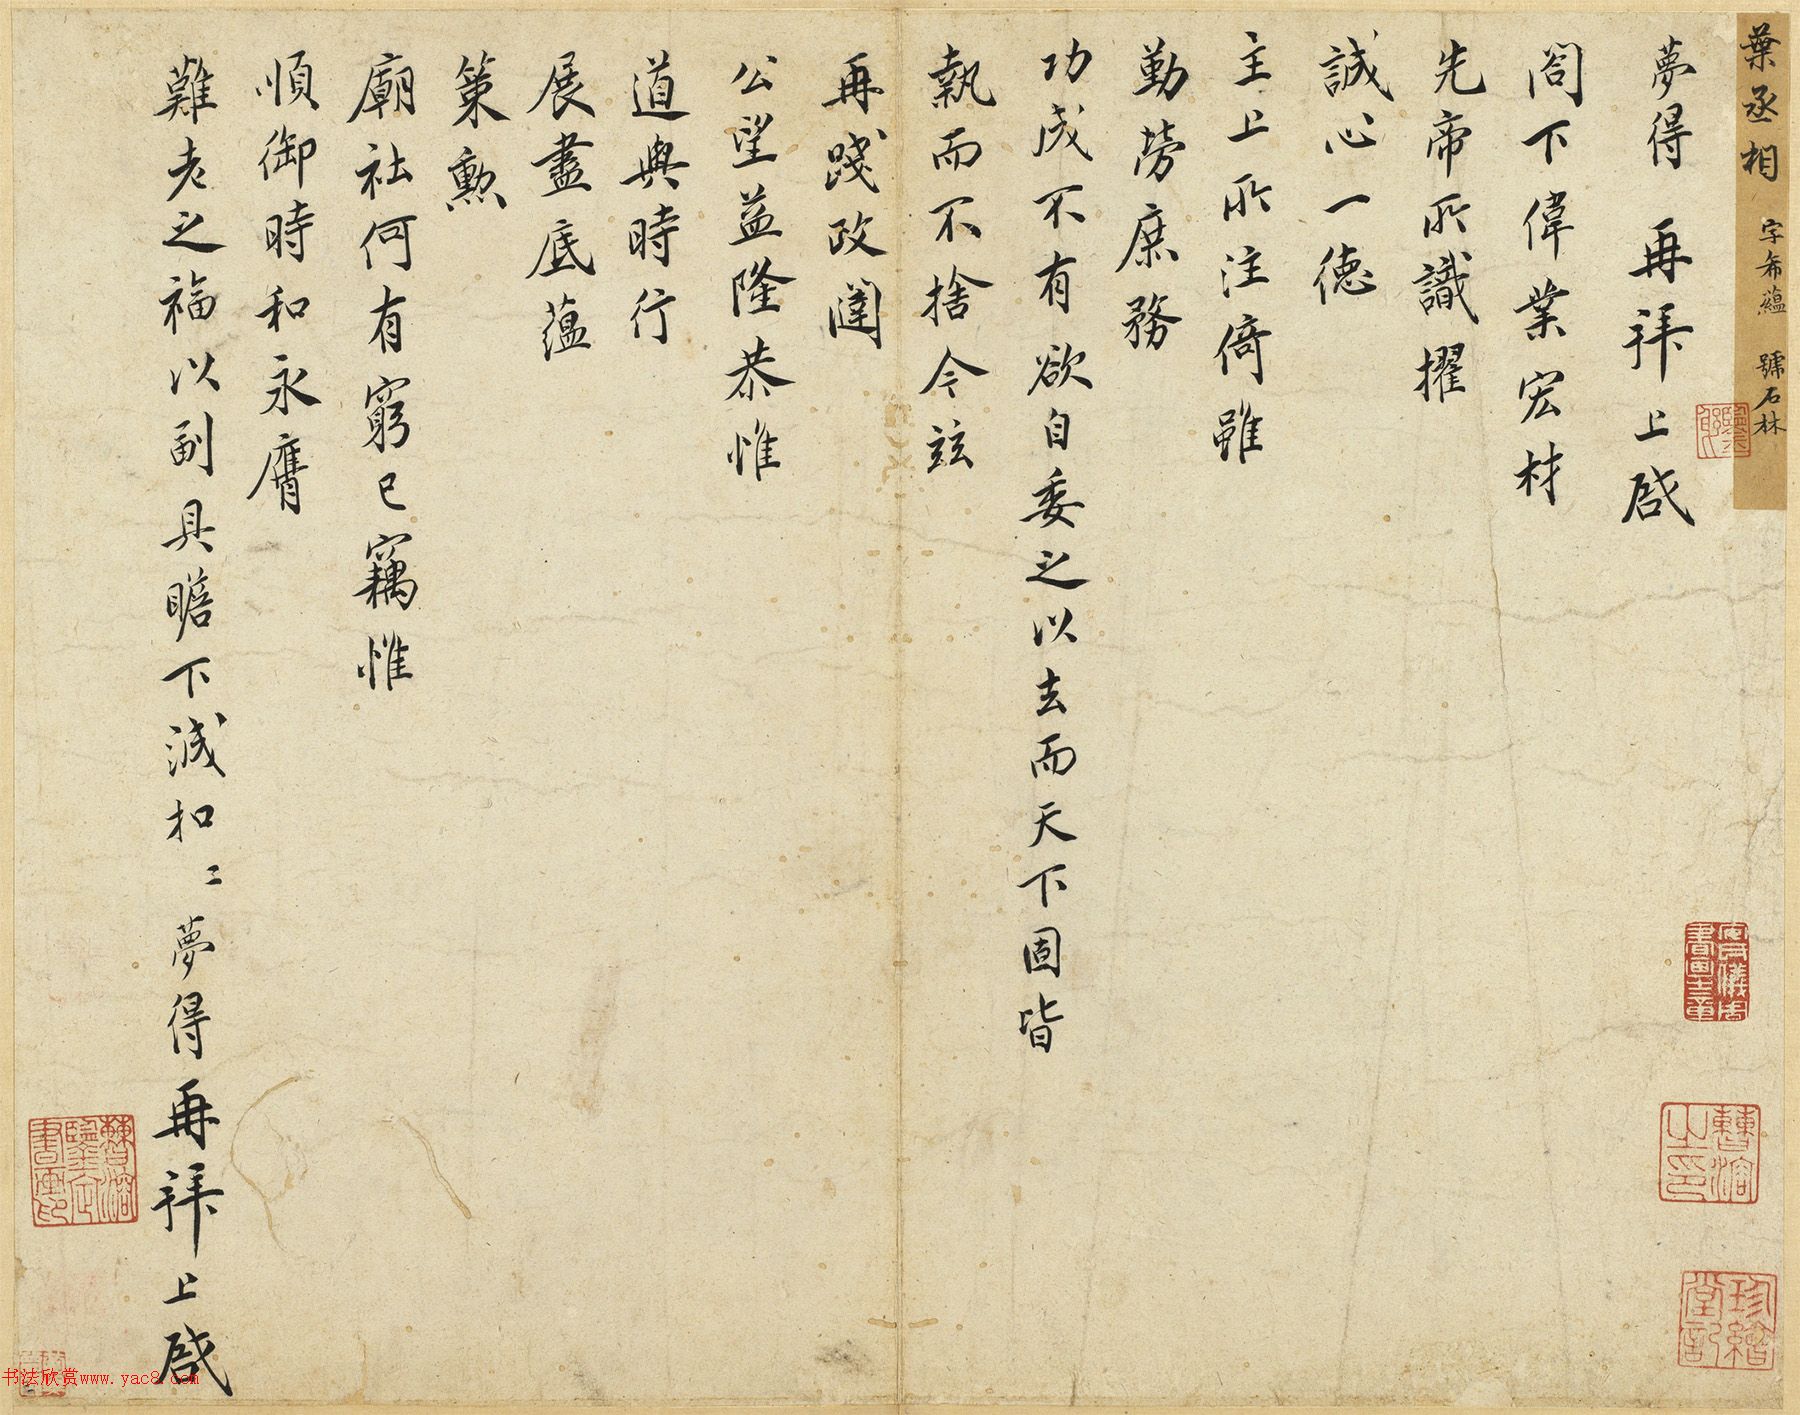 葉丞相 字希蘊 號石林
夢得 再拜上啟
閤下偉業宏材
先帝所識擢
誠心一德
主上所注倚雖
勤勞庶務
功成不有欲自委之以去而天下固皆
執而不捨今茲
再踐政闈
公望益隆恭惟
道與時行
展盡底蘊
策勳
廟社何有窮已竊惟
順御時和永膺
難老之福以副具瞻下誠扣〻夢得再拜上啟
珍繪堂記
书法欣赏www.yac8.com